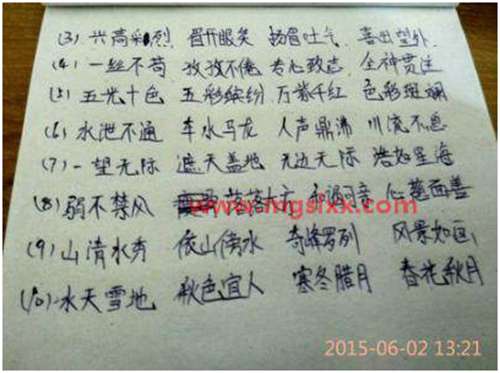 (3) 兴高彩烈 眉开眼笑 扬眉吐气 喜出望外
(4) 一丝不苟 孜孜不倦 专心致志 全神贯注
(5) 五光十色 五彩缤纷 万紫千红 色彩斑斓
(6) 水泄不通 车水马龙 人声鼎沸 川流不息
(7) 一望无际 遮天盖地 无边无际 浩如星海
(8) 弱不禁风 落落大方 和谒可亲 仁慈面善
www.mgsixk.com
(9) 山清水秀 依山傍水 奇峰罗列 风景如画
(10) 水天雪地 秋色宜人 寒冬腊月 春花秋月
2015-06-02 13:21